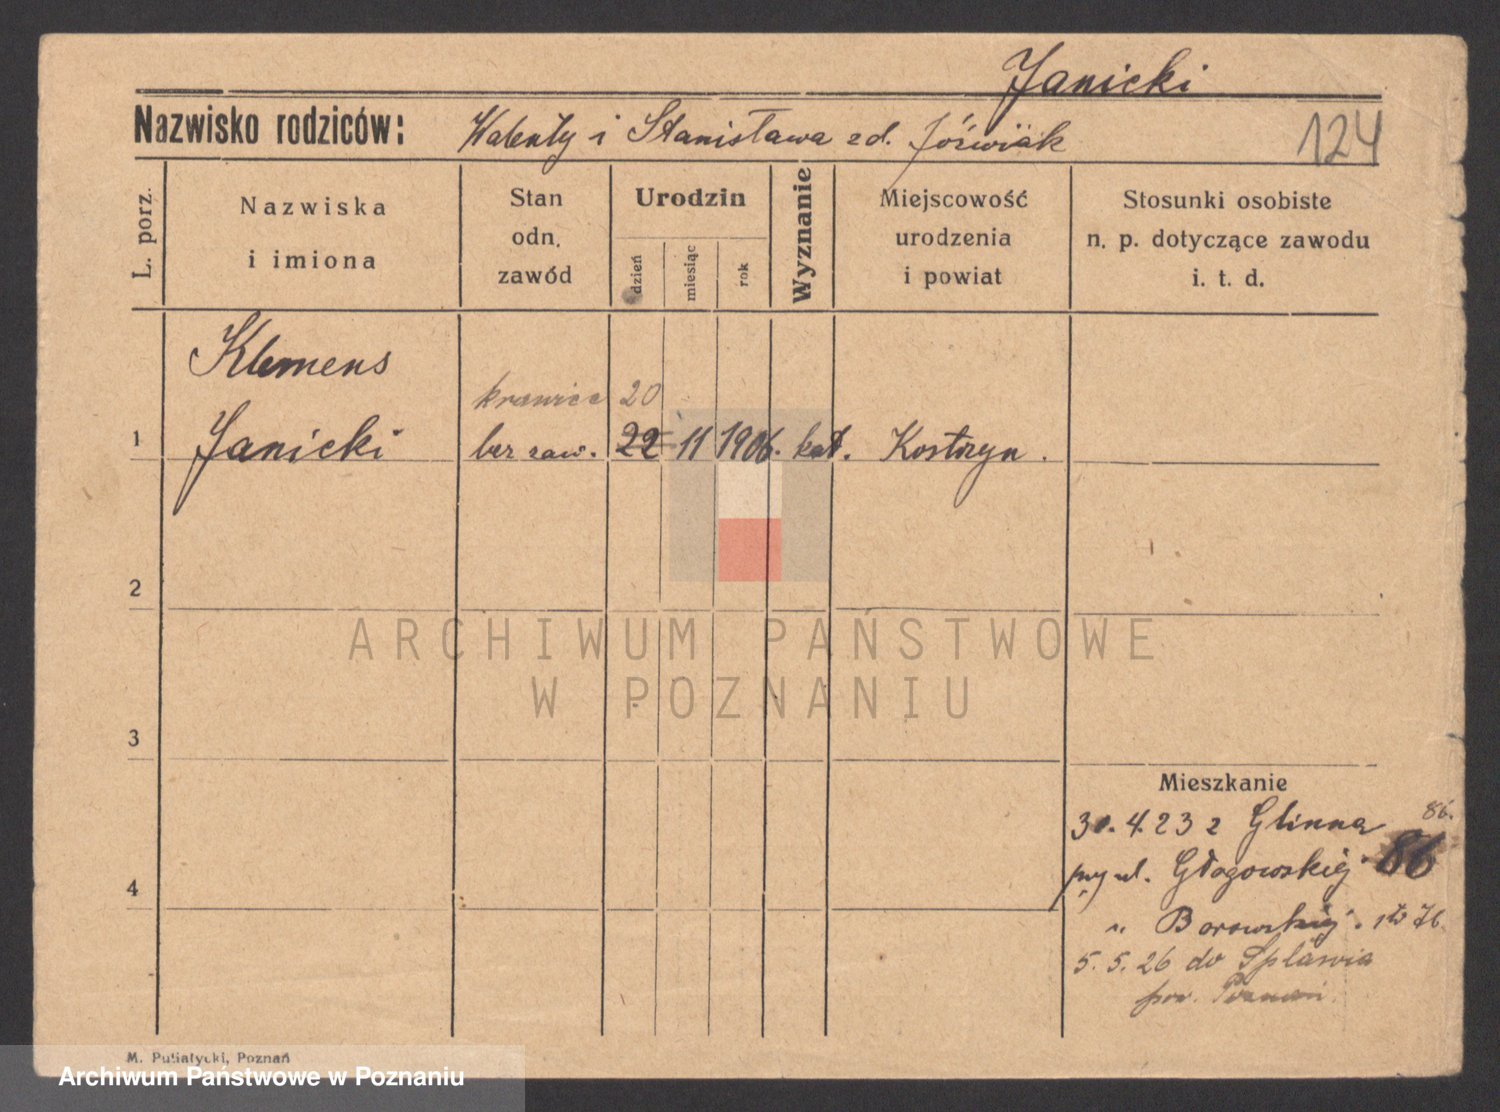 Janicki
Nazwisko rodziców: Walenty i Stanisława zd. Jóźwiak 124
L. porz.
Nazwiska
i imiona
Stan
odn.
zawód
Urodzin
dzień
miesiąc
rok
Wyznanie
Miejscowość
urodzenia
i powiat
Stosunki osobiste
n. p. dotyczące zawodu
i. t. d.
Klemens
krawiec 20
1 Janicki bez zaw. 22 11 1906. kat. Kostrzyn.
2
ARCHIWUM PAŃSTWOWE
W POZNANIU
3
Mieszkanie
30.4.23 z Glinna 86.
przy ul. Głogowskiej 86
" Borowskiej. 76.
4
5.5.26 do Spławia
pow. Poznań.
M. Putiatycki, Poznań
Archiwum Państwowe w Poznaniu